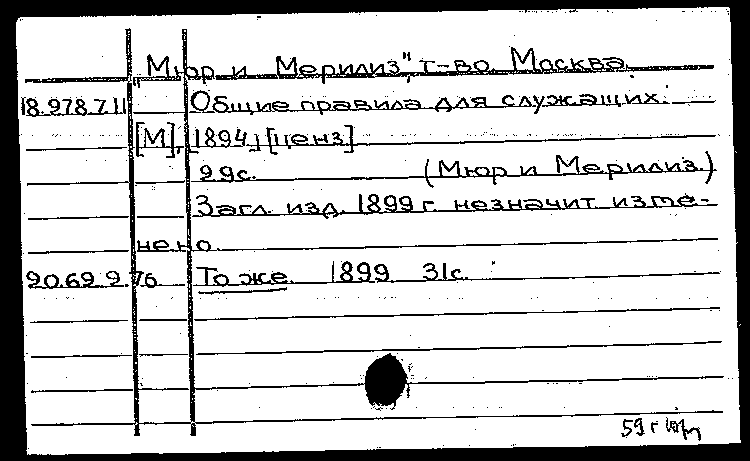 „Мюр и Мерилиз", т-во. Москва.
18.978.7.11 Общие правила для служащих.
[М], [1894] [ценз]
99с. (Мюр и Мерилиз.)
Загл. изд. 1899 г. незначит. изме-
нено.
90.69.9.76 То же. 1899. 31с.
59 г